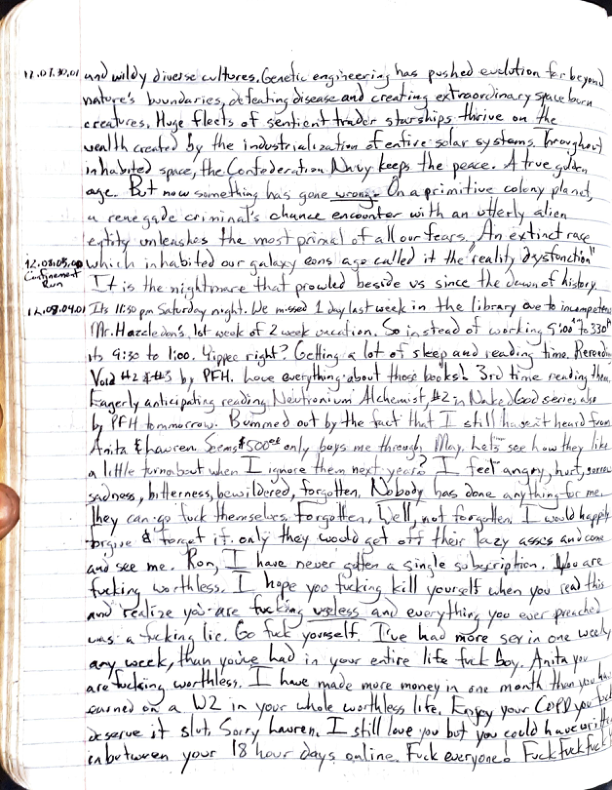 12.07.30.01 and wildy diverse cultures. Genetic engineering has pushed evolution far beyond
nature's boundaries, defeating disease and creating extraordinary space born
creatures. Huge fleets of sentient trader starships thrive on the
wealth created by the industrialization of entire solar systems. Throughout
inhabited space, the Confederation Navy keeps the peace. A true golden
age. But now something has gone wrong. On a primitive colony planet,
a renegade criminal's chance encounter with an utterly alien
entity unleashes the most primal of all our fears. An extinct race
12.08.05.00 which inhabited our galaxy eons ago called it the "reality dysfunction"
Confinement Run It is the nightmare that prowled beside us since the dawn of history.
12.08.04.01 Its 11:50 pm Saturday night. We missed 1 day last week in the library due to incompetent
Mr. Hazeldon's, 1st week of 2 week vacation. So instead of working 9:00 to 330
its 9:30 to 1:00. Yippee right? Getting a lot of sleep and reading time. Rereading
Void #2 & #3 by PFH. Love everything about those books! 3rd time reading them.
Eagerly anticipating reading Neutronium Alchemist, #2 in Naked God series also
by PFH tommorrow. Bummed out by the fact that I still haven't heard from
Anita & Lauren. Seems $500 only buys me through May. Let's see how they like
a little turnabout when I ignore them next year? I feel angry, hurt,
sadness, bitterness, bewildered, forgotten. Nobody has done anything for me.
They can go fuck themselves. Forgotten. Well, not forgotten. I would happily
forgive & forget it. only they would get off their lazy asses and come
and see me. Ron, I have never gotten a single subscription. You are
fucking worthless. I hope you fucking kill yourself when you read this
and realize you are fucking useless and everything you ever preached
was a fucking lie. Go fuck yourself. I've had more sex in one week,
any week, than you've had in your entire life fuck boy. Anita you
are fucking worthless. I have made more money in one month than you have
earned on a W2 in your whole worthless life. Enjoy your COPD you
deserve it slut. Sorry Lauren. I still love you but you could have written
inbetween your 18 hour days online. Fuck everyone! Fuck fuck fuck